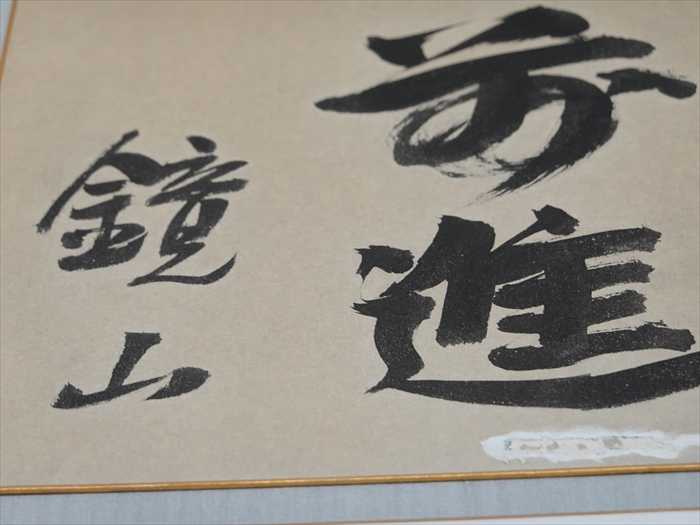 前進
鏡山